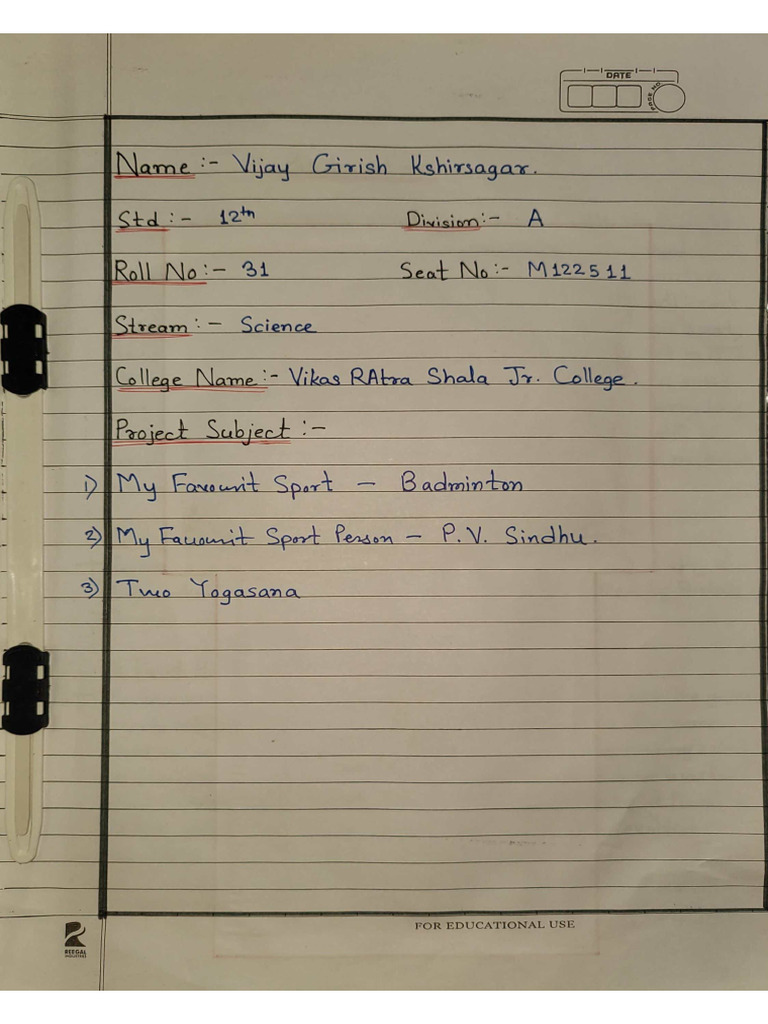 DATE
PAGE NO
Name :- Vijay Girish Kshirsagar.
Std :- 12th Division:- A
Roll No :- 31 Seat No :- M122511
Stream :- Science
College Name :- Vikas RAtra Shala Jr. College.
Project Subject :-
1) My Favourit Sport - Badminton
2) My Favourit Sport Person - P.V. Sindhu.
3) Two Yogasana
FOR EDUCATIONAL USE
REEGAL
INDUSTRIES